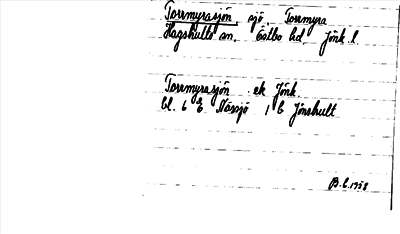 Torrmyrasjön, sjö, Torrmyra
Hagshults sn. Östbo hd. Jönk l.
Torrmyrasjön ek Jönk.
bl. 6 E Nässjö 1 b Jönshult
B.E. 1958